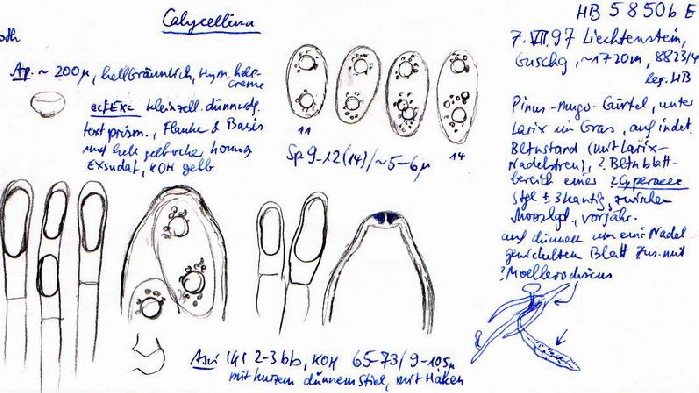 Calycellina
HB 5850b E
7.VII.97 Liechtenstein,
Guschg, ~1720m, 8823/4
leg. HB
Ap. ~ 200µ, hell bräunlich, Hym hell-
creme
ectEx= kleinzell. dünnwdg.
text prism., Flanke & Basis
mit hell gelblicher
Exsudat, KOH gelb
11
14
Sp 9-12(14)/~5-6µ
Pinus-Mugo-Gürtel, unter
Larix im Gras, auf indet.
Larix-
Nadelstreu), ?
bereich eines ? Cyperacee
Stgl ± 3kantig, zwischen
vorjähr.
auf dünnem um eine Nadel
gewickelten Blatt zus. mit
? Moellerodiscus
Asci IKI 2-3 bb, KOH 65-73/9-10.5µ
mit kurzem dünnem Stiel, mit Haken